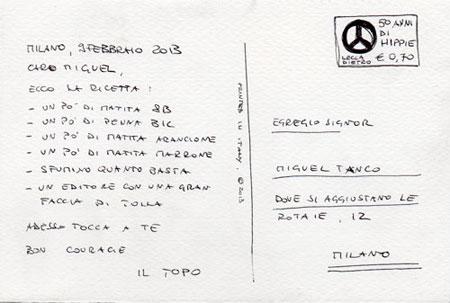 MILANO, 9 FEBBRAIO 2013
CARO MIGUEL,
ECCO LA RICETTA:
- UN PO' DI MATITA 8B
- UN PO' DI PENNA BIC
- UN PO' DI MATITA ARANCIONE
- UN PO' DI MATITA MARRONE
- SFUMINO QUANTO BASTA
- UN EDITORE CON UNA GRAN
FACCIA DI TOLLA
ADESSO TOCCA A TE
BON COURAGE
IL TOPO
PRINTED IN ITALY, © 2013
50 ANNI
DI
HIPPIE
€ 0,70
LECCA
DIETRO
EGREGIO SIGNOR
MIGUEL TANCO
DOVE SI AGGIUSTANO LE
ROTAIE, 12
MILANO